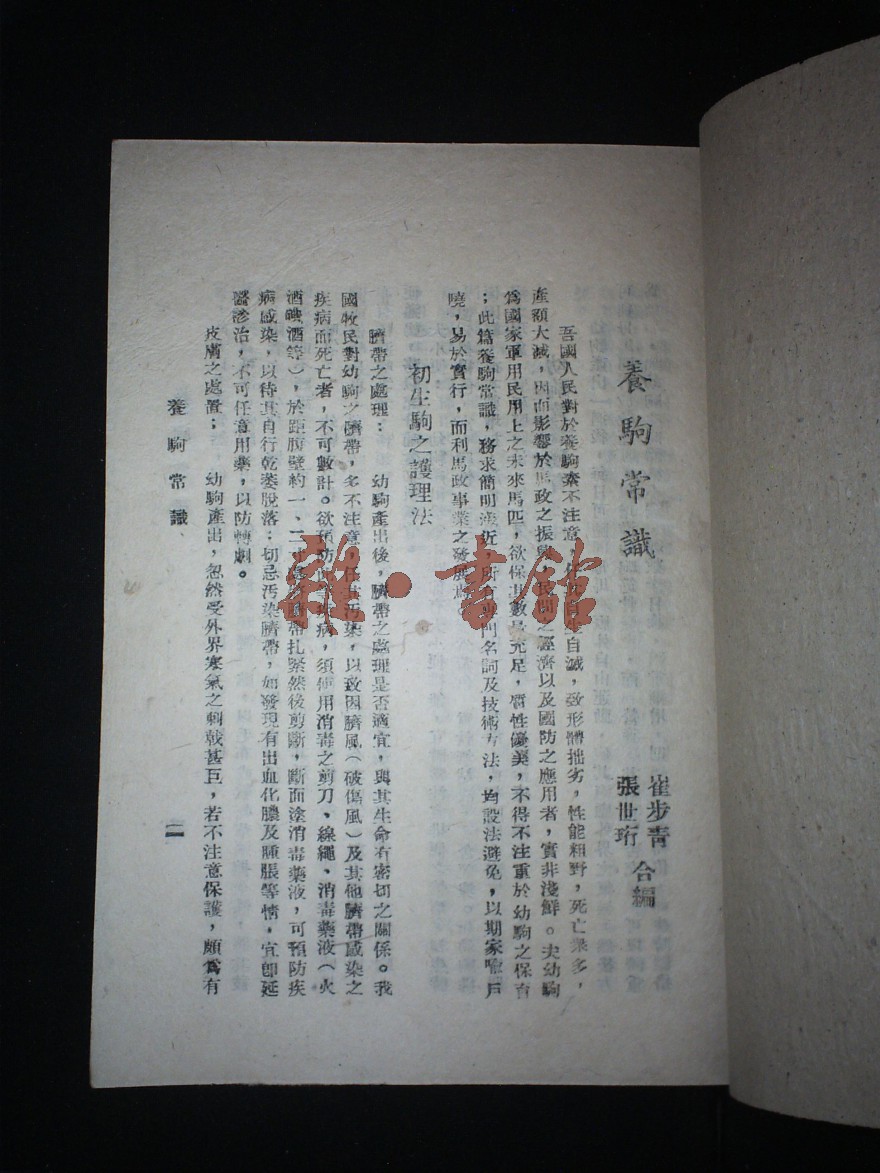 養駒常識
崔步青
張世珩
合編
吾國人民對於養駒素不注意,自滅,致形體拙劣,性能粗野,死亡衆多,
產額大減,因而影響於馬政之振興,民間之經濟以及國防之應用者,實非淺鮮。夫幼駒
爲國家軍用民用上之未來馬匹,欲保其數量充足,質性優美,不得不注重於幼駒之保育
;此篇養駒常識,務求簡明淺近,所有專門名詞及技術方法,均設法避免,以期家喩戶
曉,易於實行,而利馬政事業之發展焉。
初生駒之護理法
臍帶之處理: 幼駒產出後,臍帶之處理是否適宜,與其生命有密切之關係。我
國牧民對幼駒之臍帶,多不注意,任其汚染,以致因臍風(破傷風)及其他臍帶感染之
疾病而死亡者,不可數計。欲預防此病,須使用消毒之剪刀、線繩、消毒藥液(火
酒碘酒等),於距腹壁約一、二寸處將臍帶扎緊然後剪斷,斷面塗消毒藥液,可預防疾
病感染,以待其自行乾萎脫落;切忌汚染臍帶,如發現有出血化膿及腫脹等情,宜卽延
醫診治,不可任意用藥,以防轉劇。
皮膚之處置: 幼駒產出,忽然受外界寒氣之刺戟甚巨,若不注意保護,頗爲有
養駒常識
雜·書館